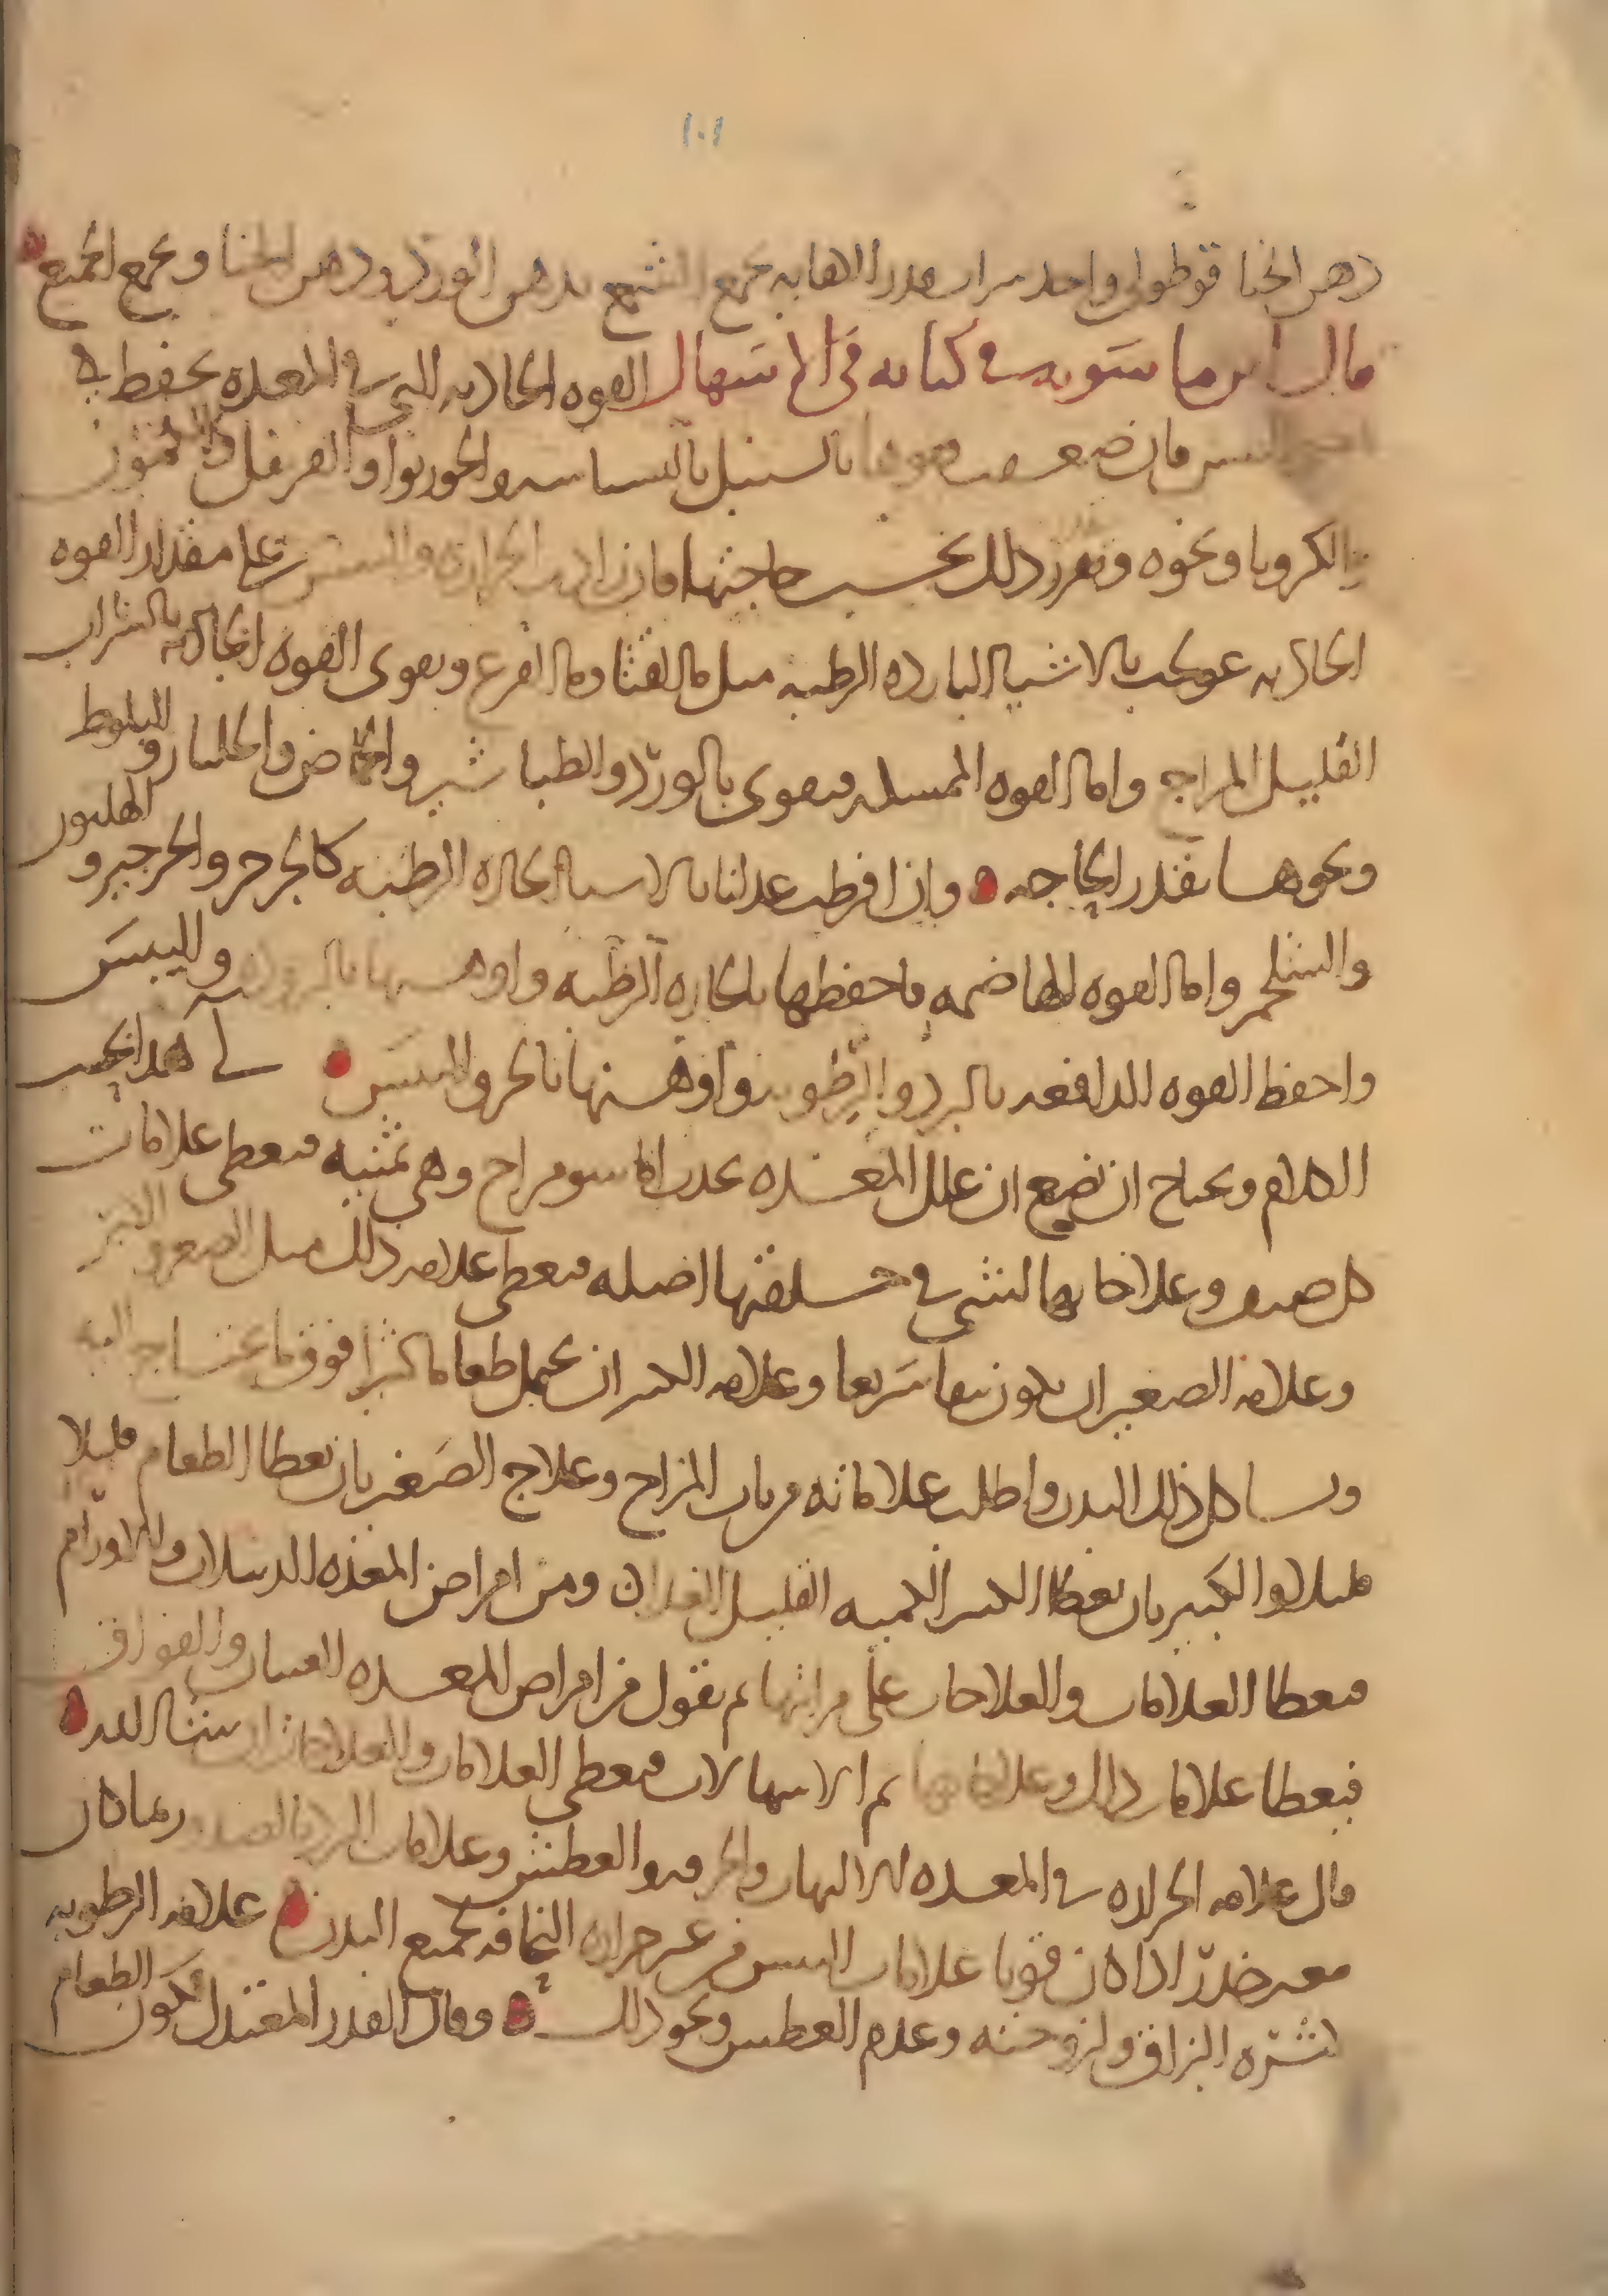 ١٠١
دهن الحنا قوطولي واحد مرار بقدر الاهابه يجمع الشمع بدهن الورد ودهن الحنا ويجمع الجميع
قال ابن ماسويه في كتابه في الاسهال القوه الجاذبه التي في المعده يحفظ بها
اليبس فان ضعفت فقوها بالسنبل بالبسباسه والجوزبوا والقرنفل والكمون
والكرويا ونحوه وتقدر ذلك بحسب حاجتها فان زادت الحراره واليبس على مقدار القوه
الجاذبه عولجت بالاشيا البارده الرطبه مثل ما القثا وما القرع وتقوى القوه الجاذبه بالشراب
القليل المزاج واما القوه الممسكه فتقوى بالورد والطباشير والحماض والجلنار والبلوط
ونحوها بقدر الحاجه وان افرطت عدلناها بالاشيا الحاره الرطبه كالجزر والجرجير والهليون
والشلجم واما القوه الهاضمه فاحفظها بالحاره الرطبه واوهنها بالبرد واليبس
واحفظ القوه الدافعه بالبرد والرطوبه واوهنها بالحر واليبس لي هذا يجب
الكلام ويحتاج ان نضع ان علل المعده تحدث اما سو مزاج وهي ثمنيه فيعطى علامات
كل صنف وعلاجاتها لشي في خلقتها اصليه فيعطى علامه ذلك مثل الصغر والكبر
وعلامه الصغير ان يكون سريعا وعلامه الكبير ان يحتمل طعاما كثيرا فوق ما يحتاج اليه
وسا كل ذلك البدن واطلب علاماته من باب المزاج وعلاج الصغير بان يعطا الطعام قليلا
قليلا والكبير بان يعطا الكثير الكميه القليل الغذا ومن امراض المعده الدبيلات والاورام
فيعطا العلامات والعلاجات على مراتبها ثم نقول من امراض المعده الغثيان والفواق
فيعطا علامات ذلك وعلاجاتها ثم الاسهالات فيعطى العلامات والعلاجات ان شا الله
قال علامه الحراره في المعده الالتهاب والحرقه والعطش وعلامات البرد بالضد وربما كان
معه خدر اذا كان قويا علامات اليبس من غير حراره النحافه لجميع البدن علامه الرطوبه
كثره البزاق ولزوجته وعدم العطش ونحو ذلك وقال القدر المعتدل يكون الطعام